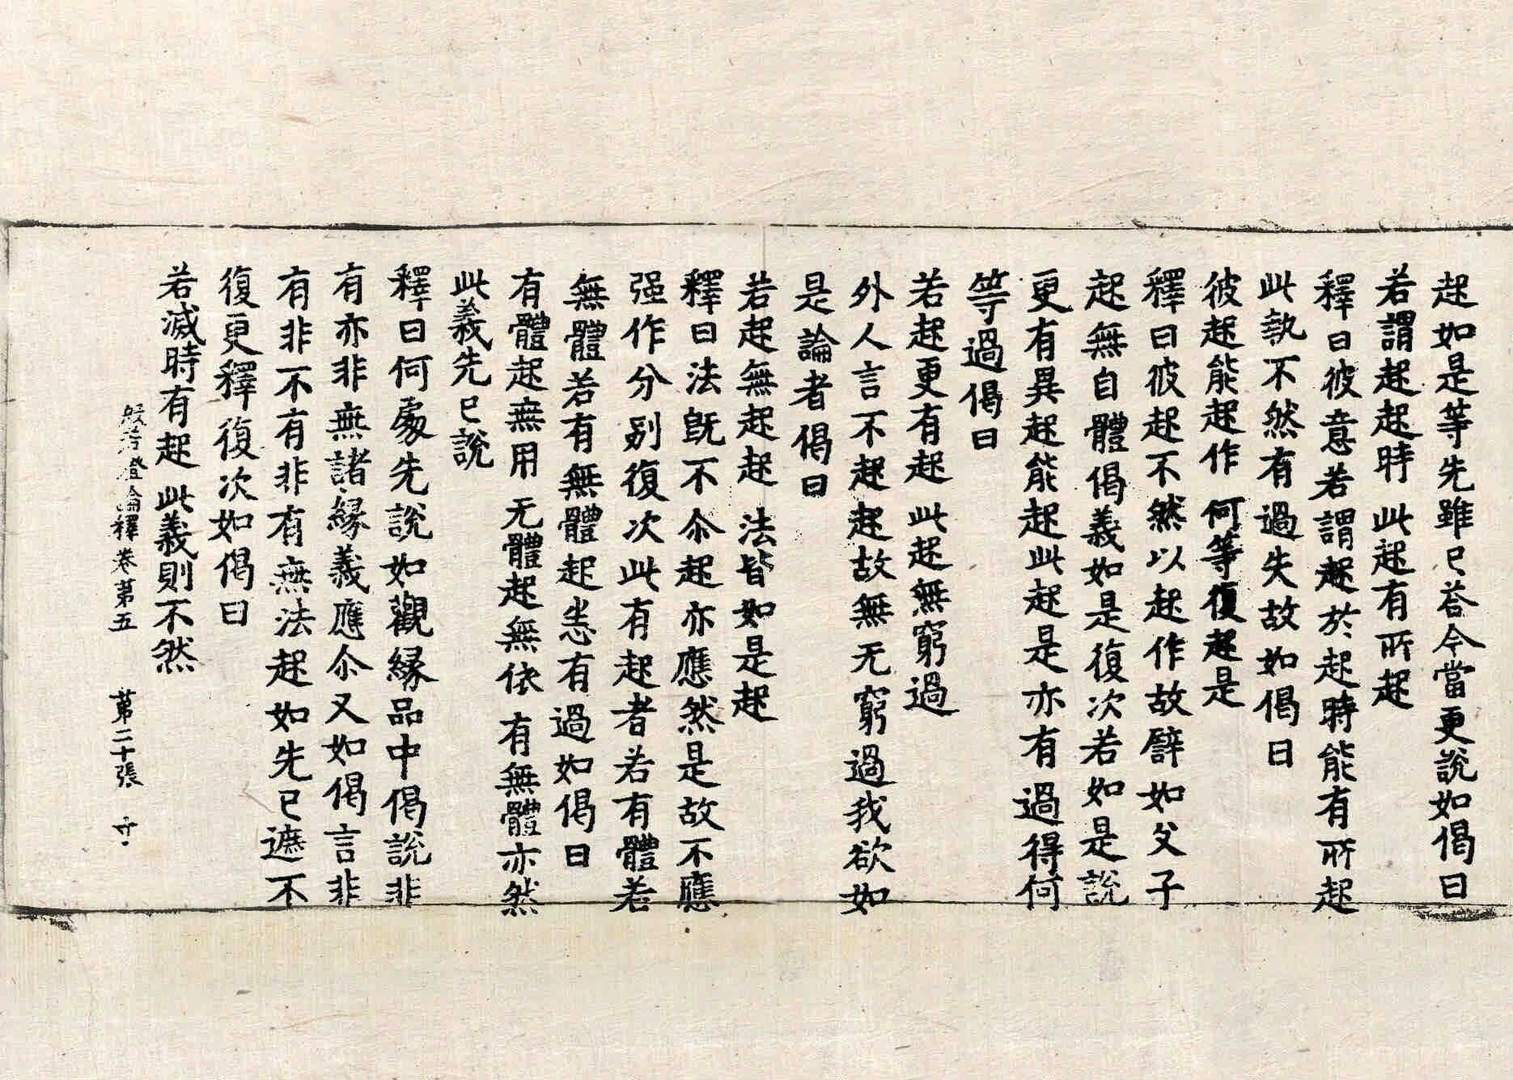 起如是等先雖已荅今當更說如偈曰
若謂起起時 此起有所起
釋曰彼意若謂起於起時能有所起
此執不然有過失故如偈曰
彼起能起作 何等復起是
釋曰彼起不然以起作故譬如父子
起無自體偈義如是復次若如是說
更有異起能起此起是亦有過得何
等過偈曰
若起更有起 此起無窮過
外人言不起起故無无窮過我欲如
是論者偈曰
若起無起起 法皆如是起
釋曰法旣不尒起亦應然是故不應
强作分别復次此有起者若有體若
無體若有無體起恙有過如偈曰
有體起無用 无體起無依 有無體亦然
此義先已說
釋曰何處先說如觀緣品中偈說非
有亦非無諸緣義應尒又如偈言非
有非不有非有無法起如先已遮不
復更釋復次如偈曰
若滅時有起 此義則不然
般若燈論釋卷第五 第二十張